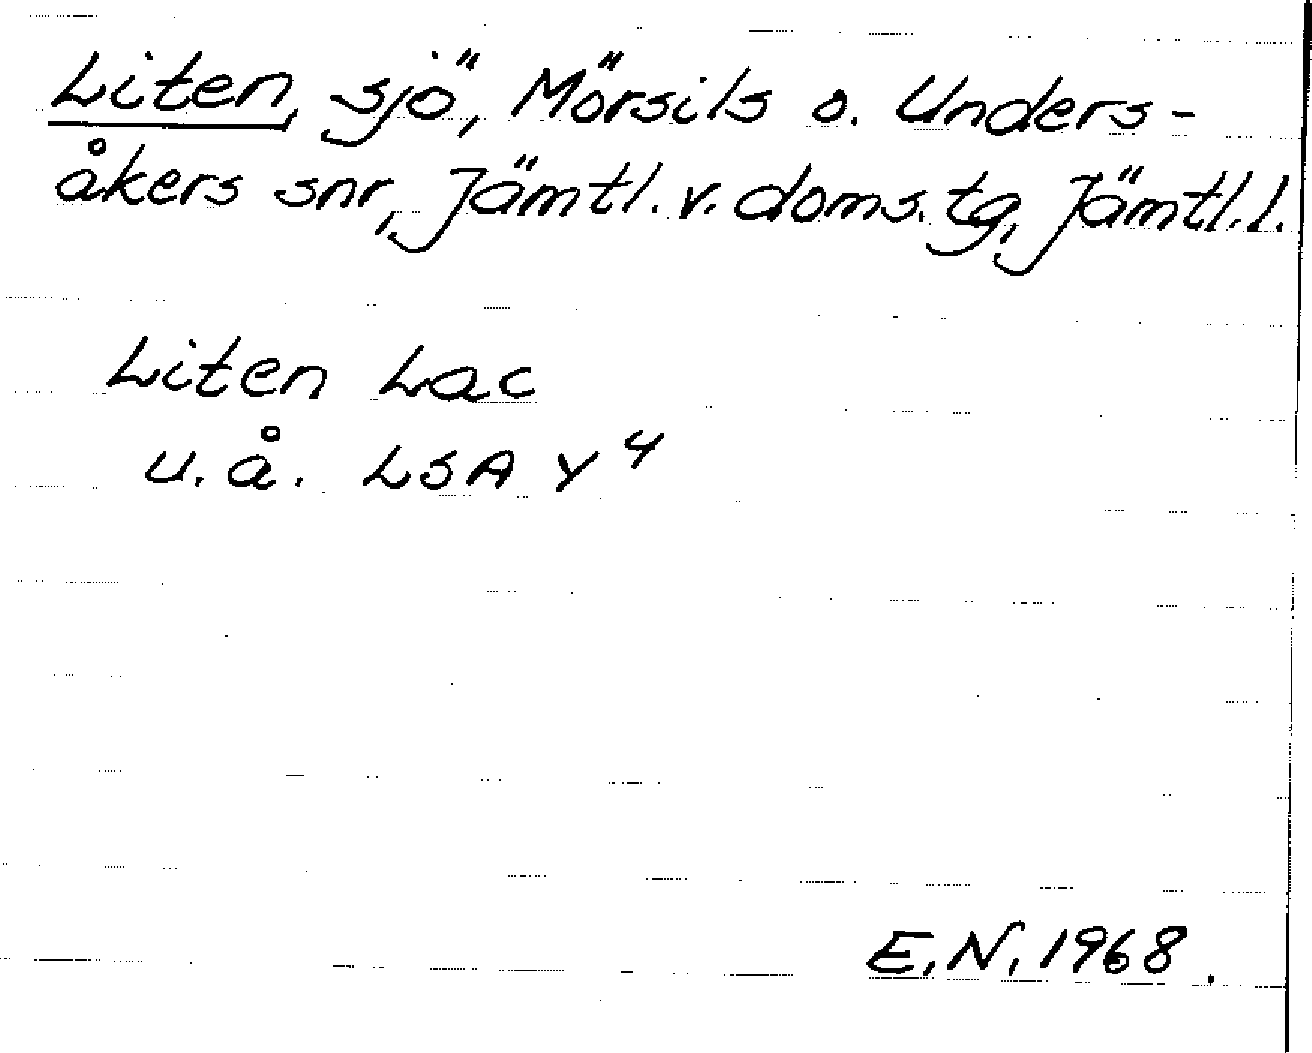 Liten, sjö, Mörsils o. Unders-
åkers snr, Jämtl. v. doms. tg, Jämtl. l.
Liten Lac
u. å. LSA Y 4
E. N. 1968.